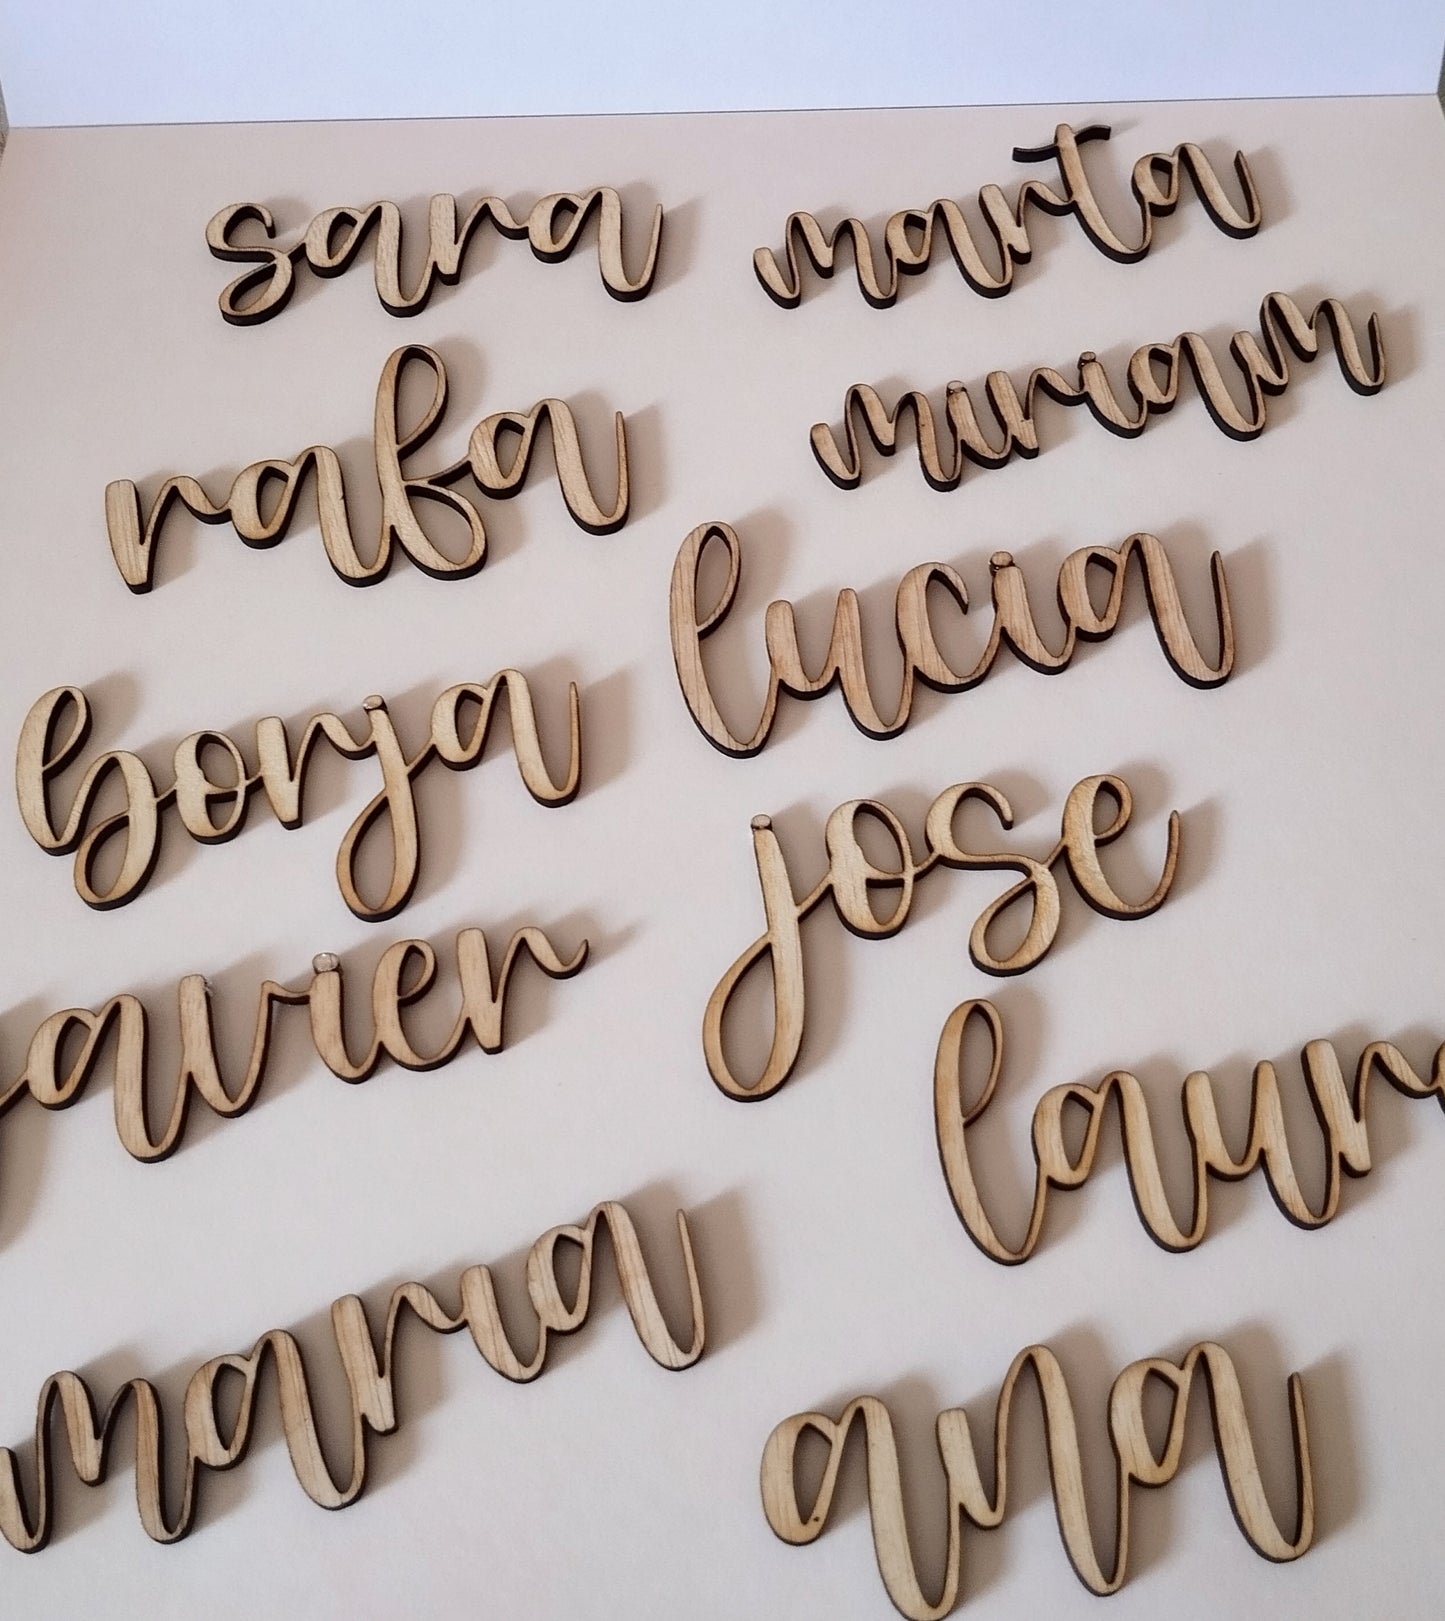 sara
marta
rafa
miriam
borja
lucia
jose
avier
laur
maria
ana